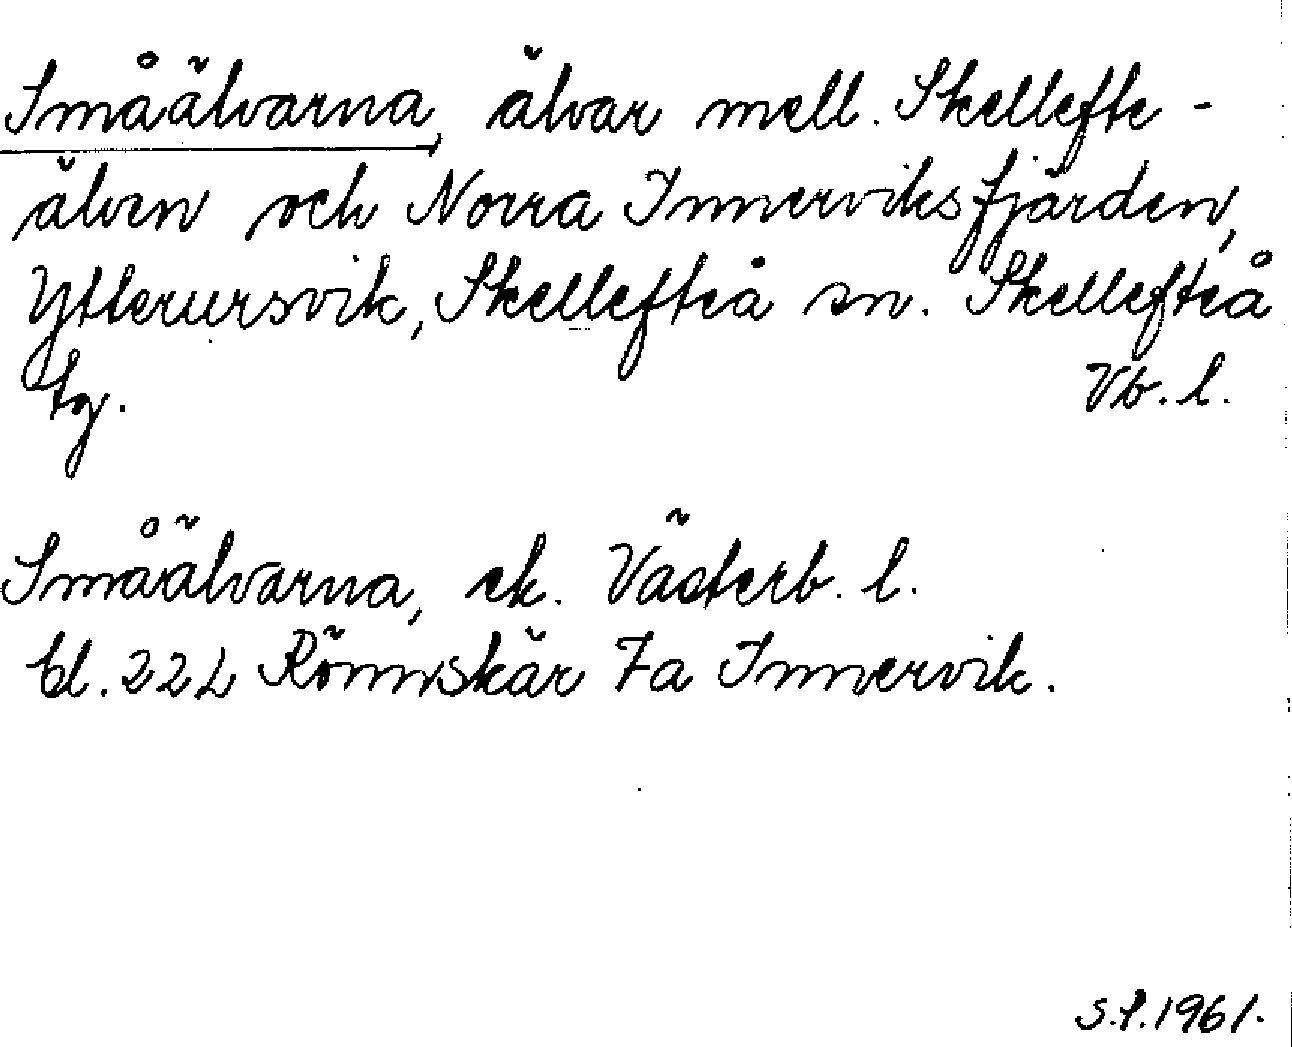 Småälvarna, älvar mell. Skellefte-
älven och Norra Innerviksfjärden,
Ytterursvik, Skellefteå sn. Skellefteå
tg. Vb. l.
Småälvarna, ek. Västerb. l.
bl. 22L Rönnskär 7a Innervik.
S.P. 1961.